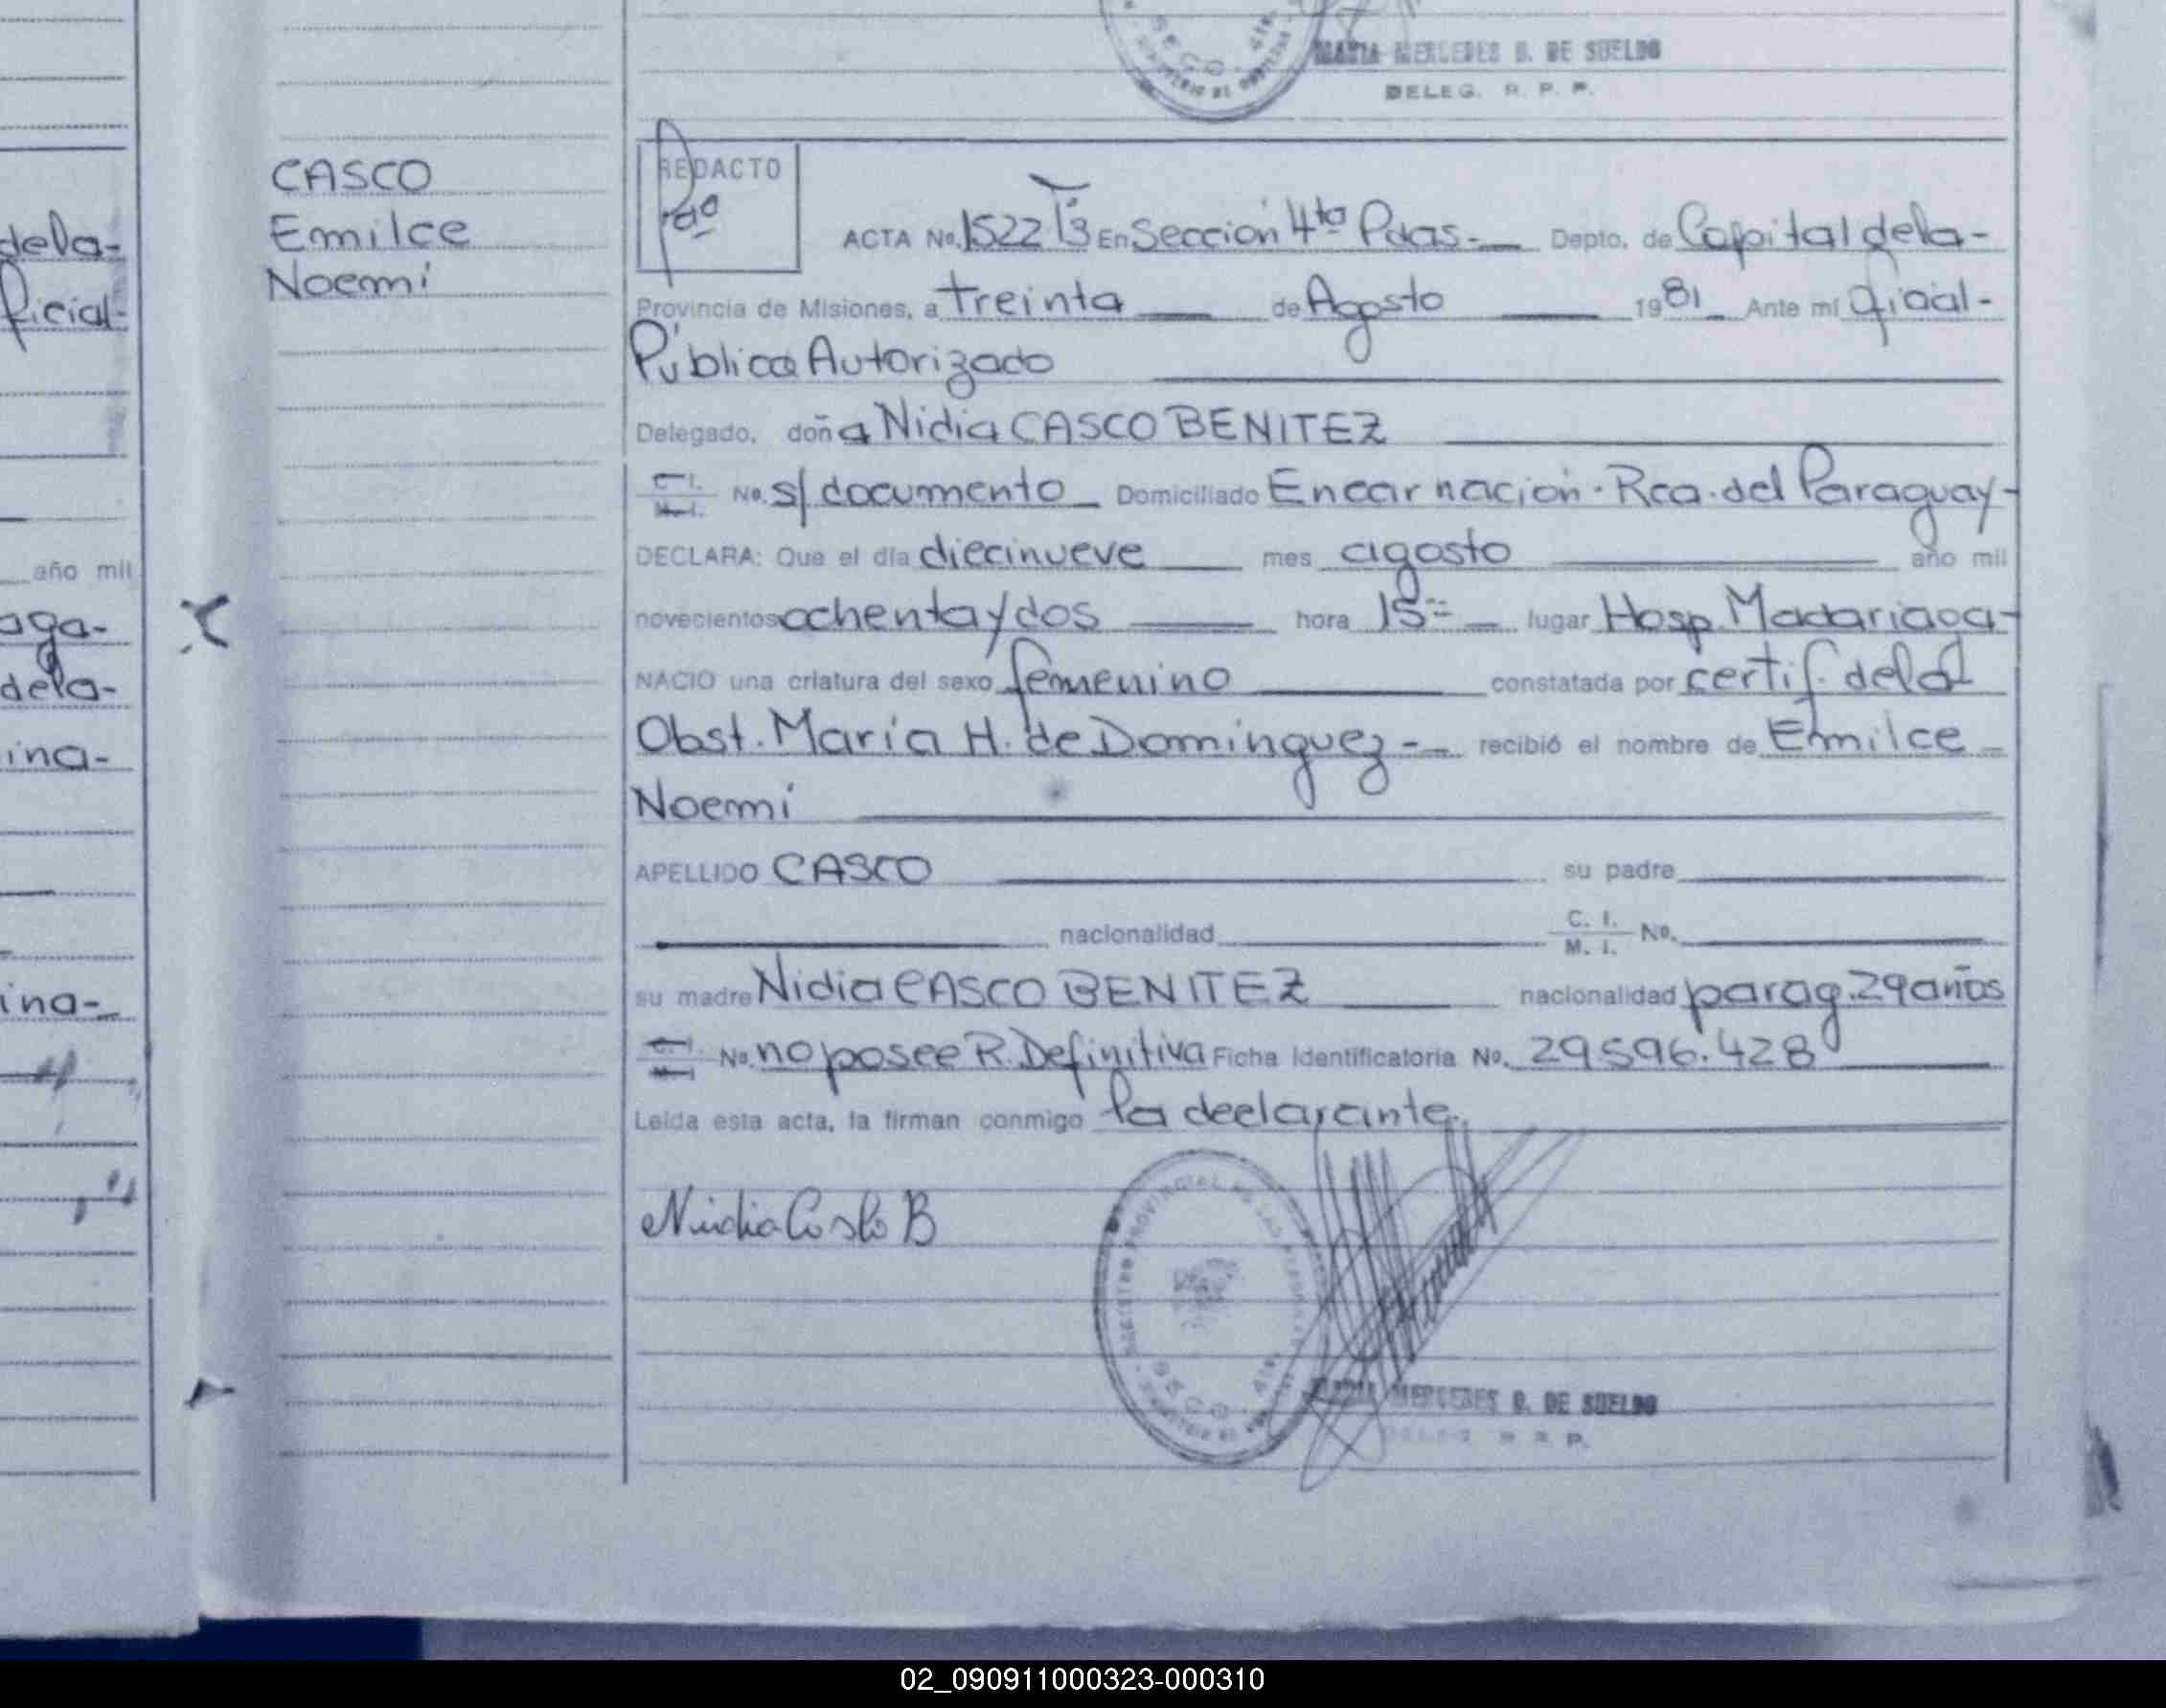 SEGO
MARIA MERCEDES B. DE SUELDO
DELEG. R. P. P.
CASCO
Emilce
Noemí
REDACTO
ACTA No. 1522 T3 En Sección 4ta Pdas.- Depto. de Capital dela-
Provincia de Misiones, a treinta de Agosto 1981 Ante mí Oficial-
Público Autorizado
Delegado, doña Nidia CASCO BENITEZ
C. I. M. I. No. s/documento Domiciliado Encarnación. Rca. del Paraguay-
DECLARA: Que el día diecinueve mes agosto año mil
novecientos ochenta y dos hora 15= lugar Hosp. Madariaga-
NACIO una criatura del sexo femenino constatada por certif. dela
Obst. María H. de Dominguez - recibió el nombre de Emilce
Noemí
APELLIDO CASCO su padre
nacionalidad C. I. M. I. No.
su madre Nidia CASCO BENITEZ nacionalidad parag. 29 años
C. I. M. I. No. no posee R. Definitiva Ficha Identificatoria No. 29.596.428
Leída esta acta, la firman conmigo la declarante.
Nidia Casco B
REGISTRO PROVINCIAL DE LAS PERSONAS
MARIA MERCEDES B. DE SUELDO
DELEG. R. P. P.
dela-
ficial-
año mil
aga-
dela-
ina-
ina-
02_090911000323-000310